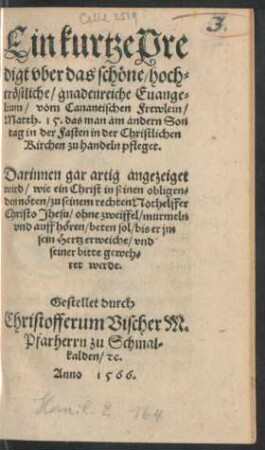 Celle 2519
3.
Ein kurtze Pre
digt vber das schöne/ hoch-
tröstliche/ gnadenreiche Euange-
lium/ vom Cananeischen Frewlein/
Matth. 15. das man am andern Son
tag in der Fasten in der Christlichen
Kirchen zu handeln pfleget.
Darinnen gar artig angezeiget
wird/ wie ein Christ in seinen obligen-
den nöten/ zu seinem rechten Nothelffer
Christo Jhesu/ ohne zweiffel/ murmeln
vnd auffhören/ beten sol/ bis er jm
sein Hertz erweiche/ vnd
seiner bitte geweh-
ret werde.
Gestellet durch
Christofferum Vischer M.
Pfarherrn zu Schmal-
kalden/ ꝛc.
Anno 1566.
Homil. 2. 164